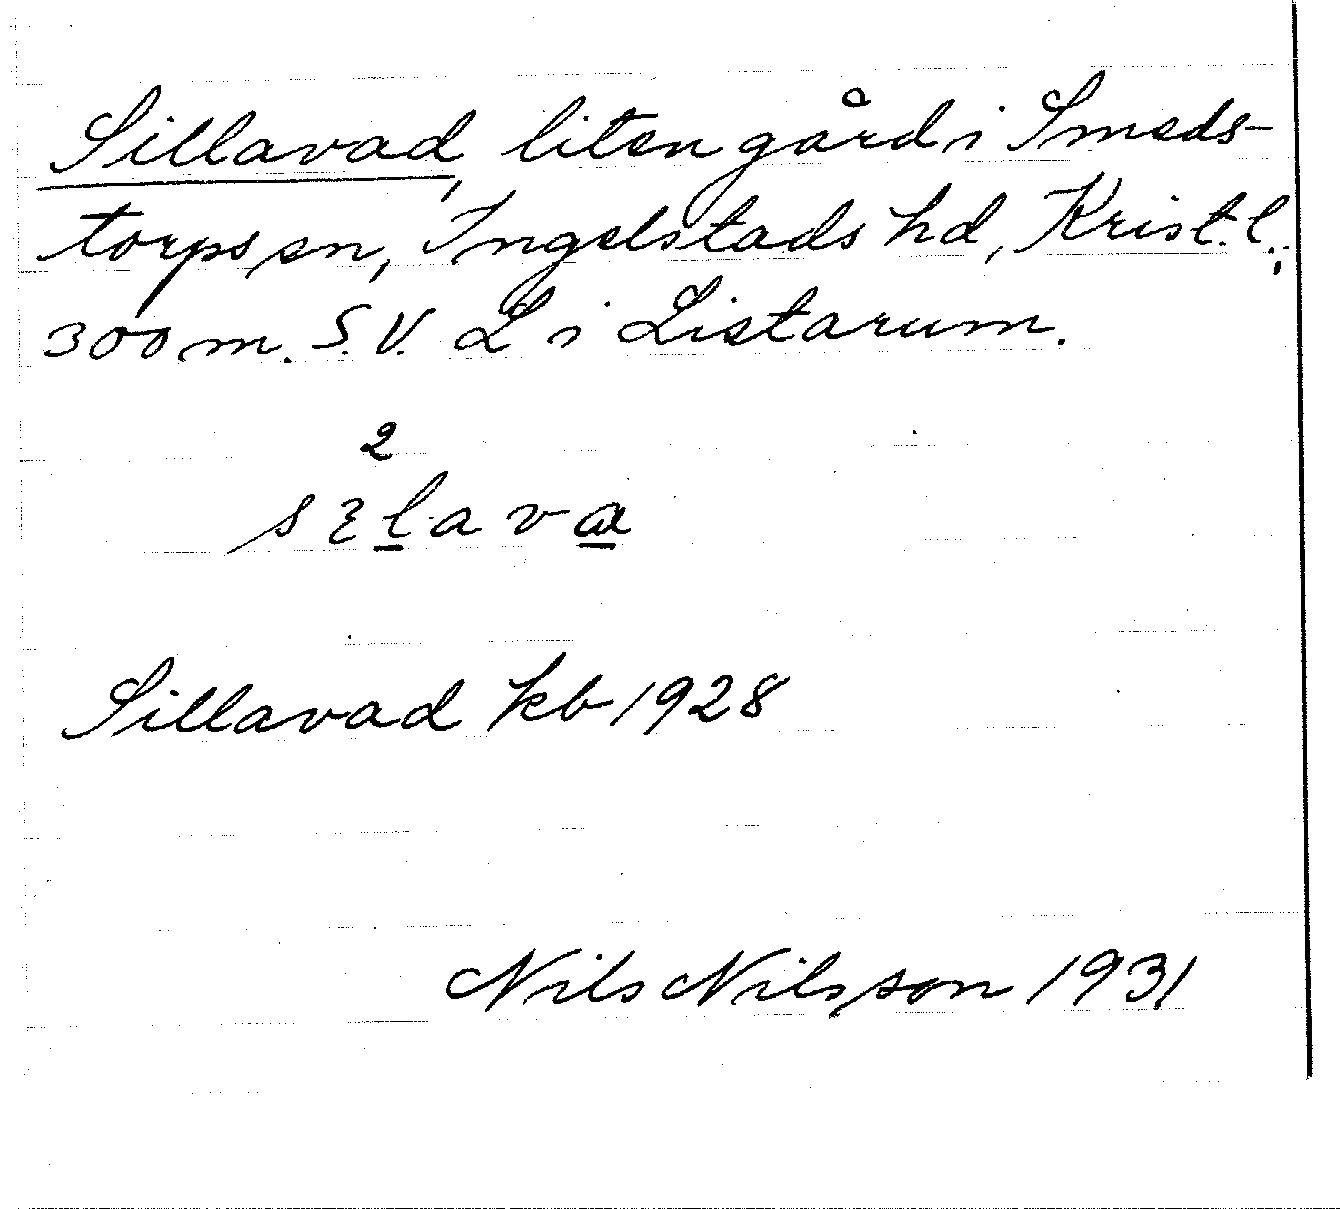 Sillavad, liten gård i Smeds-
torps sn, Ingelstads hd, Krist. l.;
300 m. S.V. L i Listarum.
2
Sillavad kb 1928
Nils Nilsson 1931